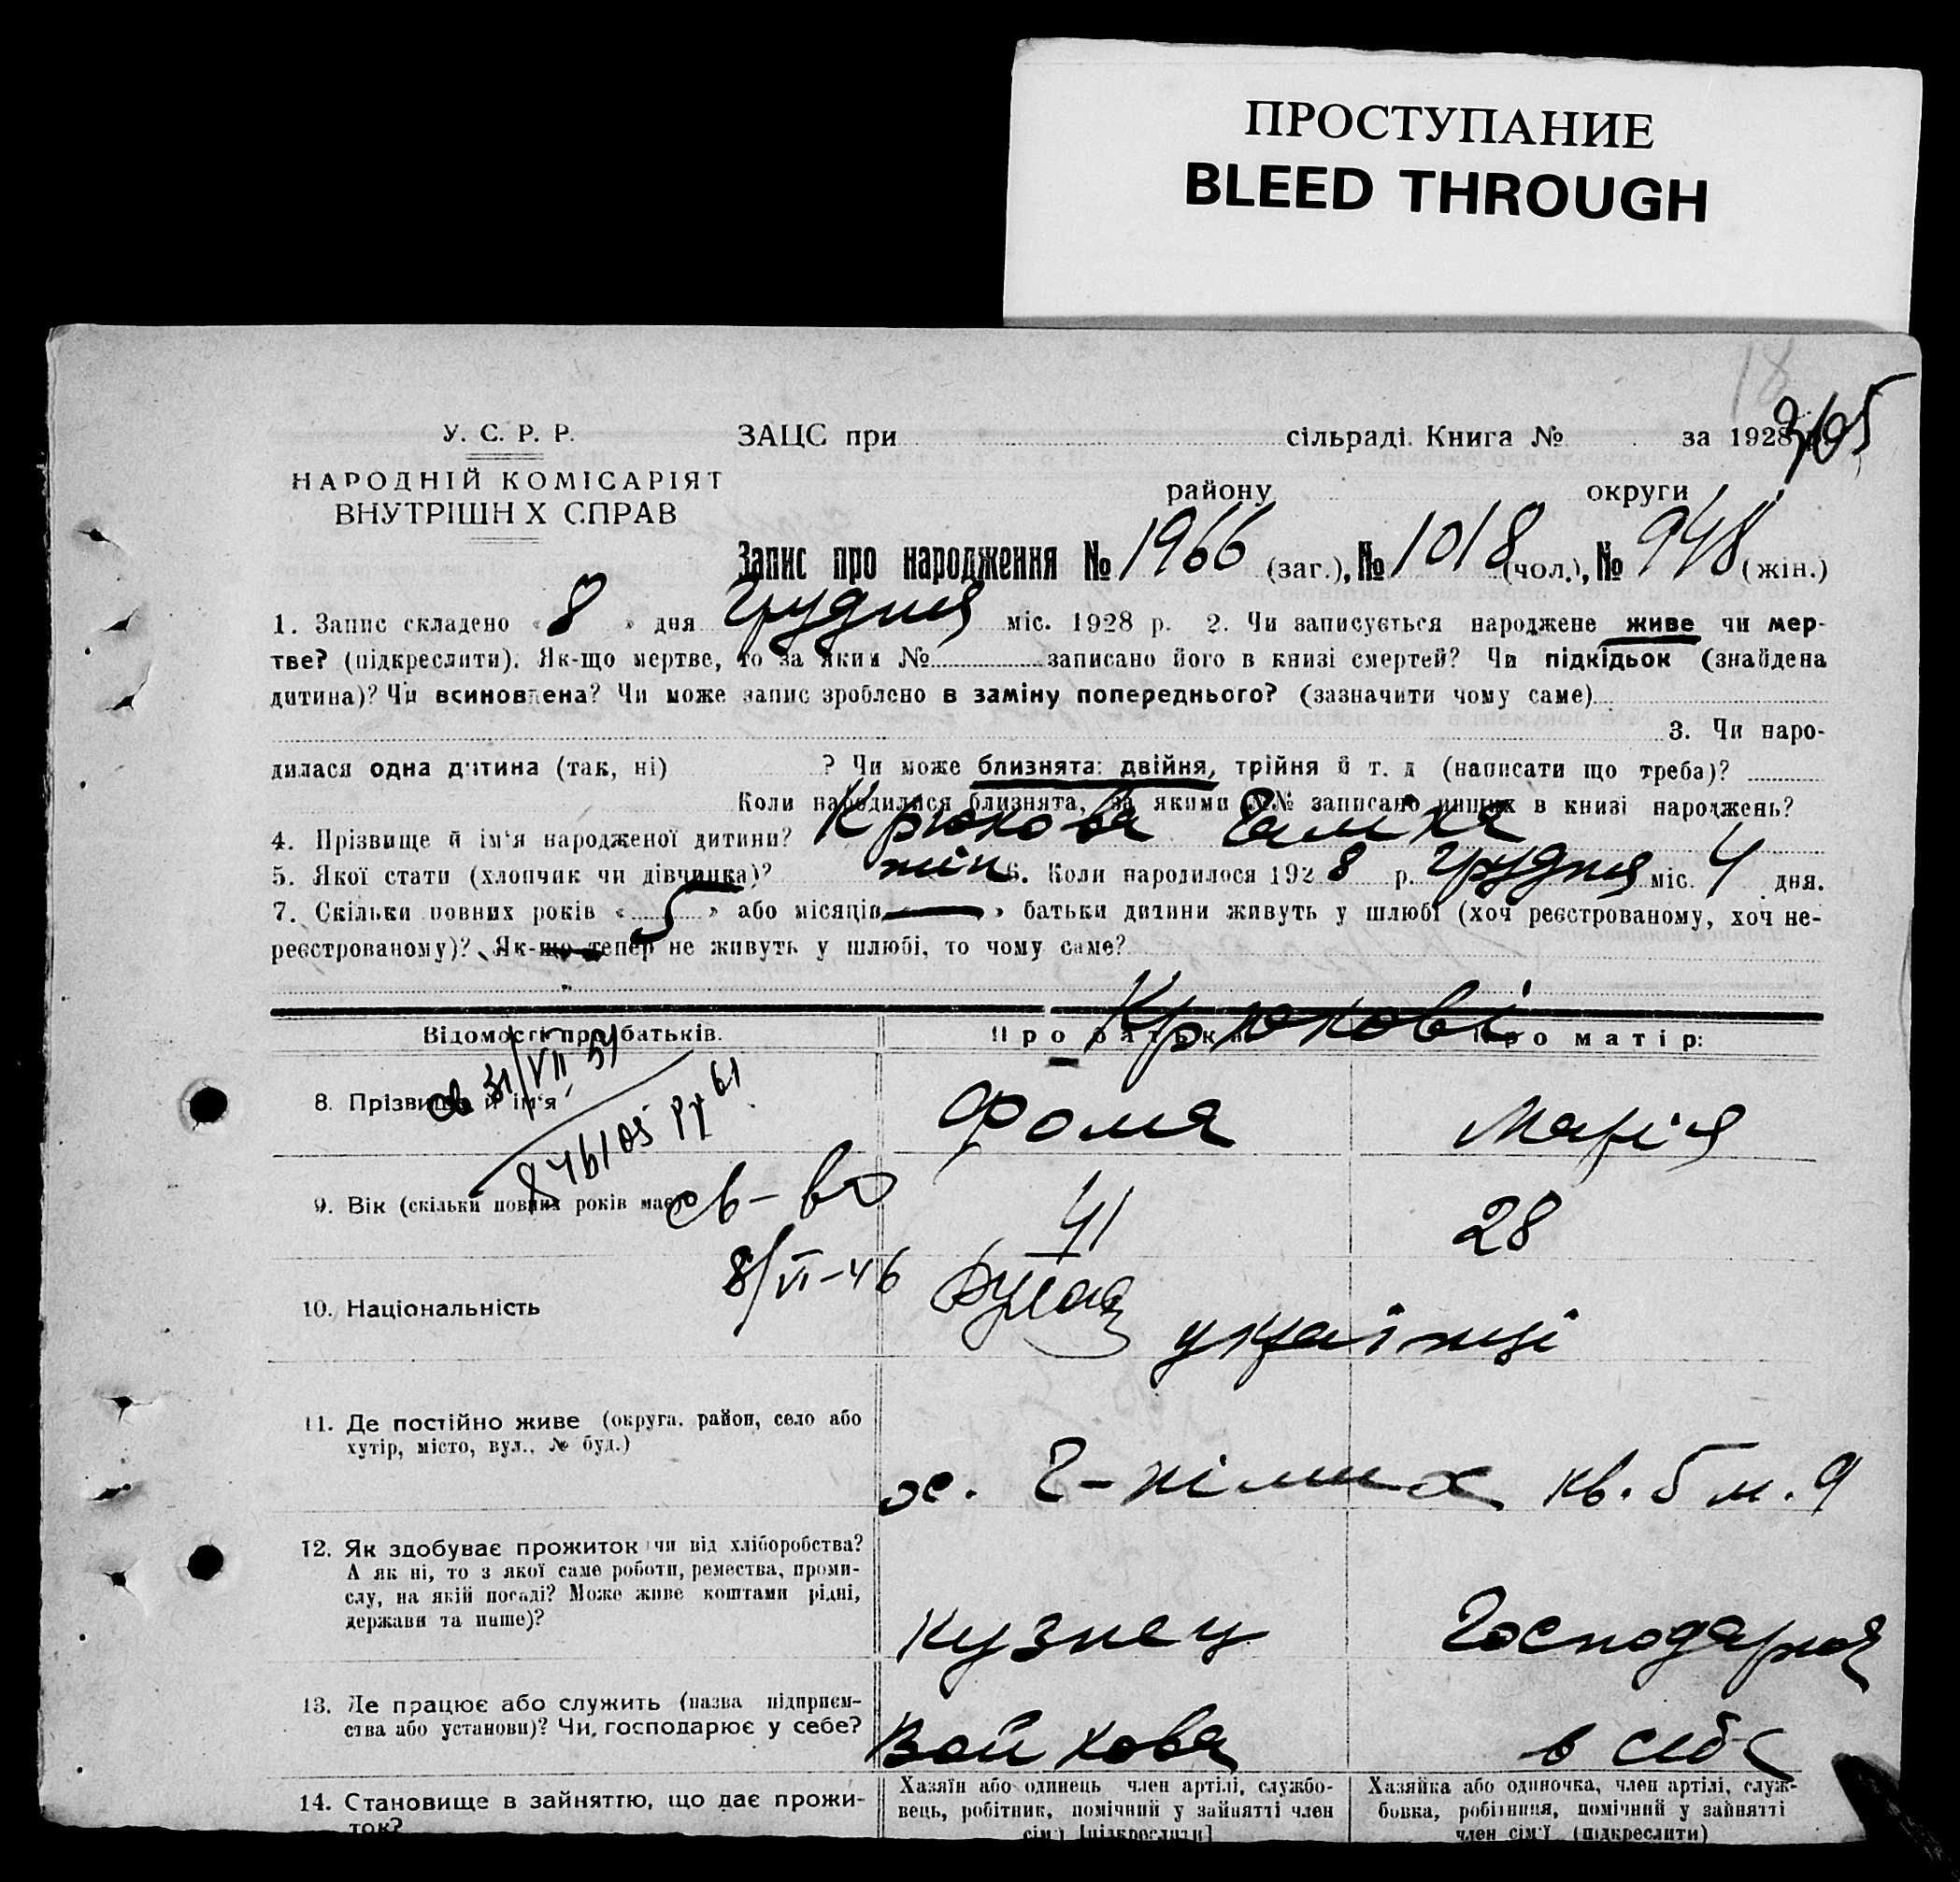 ПРОСТУПАНИЕ
BLEED THROUGH
18
У. С. Р. Р.
НАРОДНІЙ КОМІСАРІЯТ
ВНУТРІШН Х СПРАВ
ЗАЦС при сільраді. Книга № за 1928
району округи
Запис про народження № 1966 (заг.), № 1018 (чол.), № 948 (жін.)
1. Запис складено « 8 » дня Грудня міс. 1928 р. 2. Чи записується народжене живе чи мер-
тве? (підкреслити). Як-що мертве, то за яким № записано його в книзі смертей? Чи підкідьок (знайдена
дитина)? Чи всиновлена? Чи може запис зроблено в заміну попереднього? (зазначити чому саме)
3. Чи наро-
дилася одна дитина (так, ні) ? Чи може близнята: двійня, трійня й т. д (написати що треба)?
Коли народилися близнята, за якими №№ записано инших в книзі народжень?
4. Прізвище й ім'я народженої дитини? Крюкова
5. Якої стати (хлопчик чи дівчинка)? жін 6. Коли народилося 1928 р. Грудня міс. 4 дня.
7. Скільки повних років « 5 » або місяців « — » батьки дитини живуть у шлюбі (хоч реєстрованому, хоч не-
реєстрованому)? Як-що тепер не живуть у шлюбі, то чому саме?
Крюкові
Відомості про батьків. Про батька Про матір:
8. Прізвище й ім'я Фома Марія
9. Вік (скільки повних років має) 41 28
св-во
8/VI-46
10. Національність українці
11. Де постійно живе (округа, район, село або
хутір, місто, вул., № буд.)
кв. 5 н. 9
12. Як здобуває прожиток чи від хліборобства?
А як ні, то з якої саме роботи, ремества, проми-
слу, на якій посаді? Може живе коштами рідні,
держави та инше)?
кузнец Господарка
13. Де працює або служить (назва підприєм-
ства або установи)? Чи, господарює у себе?
Войкова в себе
14. Становище в зайняттю, що дає прожи-
ток?
Хазяїн або одинець член артілі, службо-
вець, робітник, помічний у зайнятті член
сім'ї [підкреслити]
Хазяйка або одиночка, член артілі, служ-
бовка, робітниця, помічний у зайнятті
член сім'ї (підкреслити)